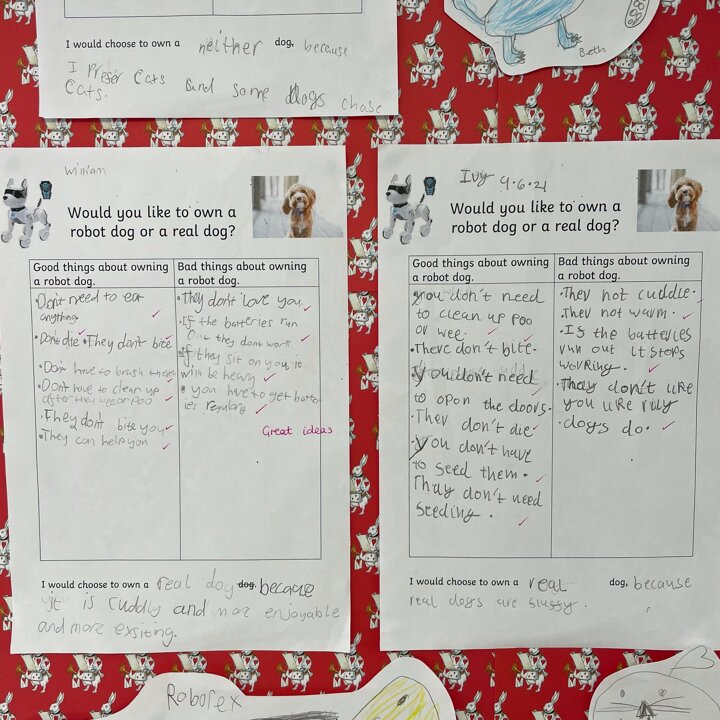 I would choose to own a neither dog, because
I preser Cats and some Dogs chase
Cats.
Beth
William
Would you like to own a
robot dog or a real dog?
Good things about owning
a robot dog.
Bad things about owning
a robot dog.
•Don't need to eat
anything.
•Don't die •They don't bite
•Don't have to brush them
•Don't have to clear up
after they wee or poo
•They don't bite you
•They can help you
•They don't love you.
•If the batteries run
out they dont work
If they sit on you it
will be heavy
• you have to get batter
ies regulary
Great ideas.
I would choose to own a real dog dog. because
it is cuddly and more enjoyable
and more exsiting.
Ivy 9.6.21
Would you like to own a
robot dog or a real dog?
Good things about owning
a robot dog.
Bad things about owning
a robot dog.
you don't need
to clean up poo
or wee.
•There don't bite.
You don't need
to opon the doors.
•They don't die
•You don't have
to seed them.
Thay don't need
seeding.
•They not cuddle.
They not warm.
•Is the batteries
run out it stops
working.
•Thay don't like
you like rily
•dogs do.
I would choose to own a real dog, because
real dogs are slussy.
Roborex